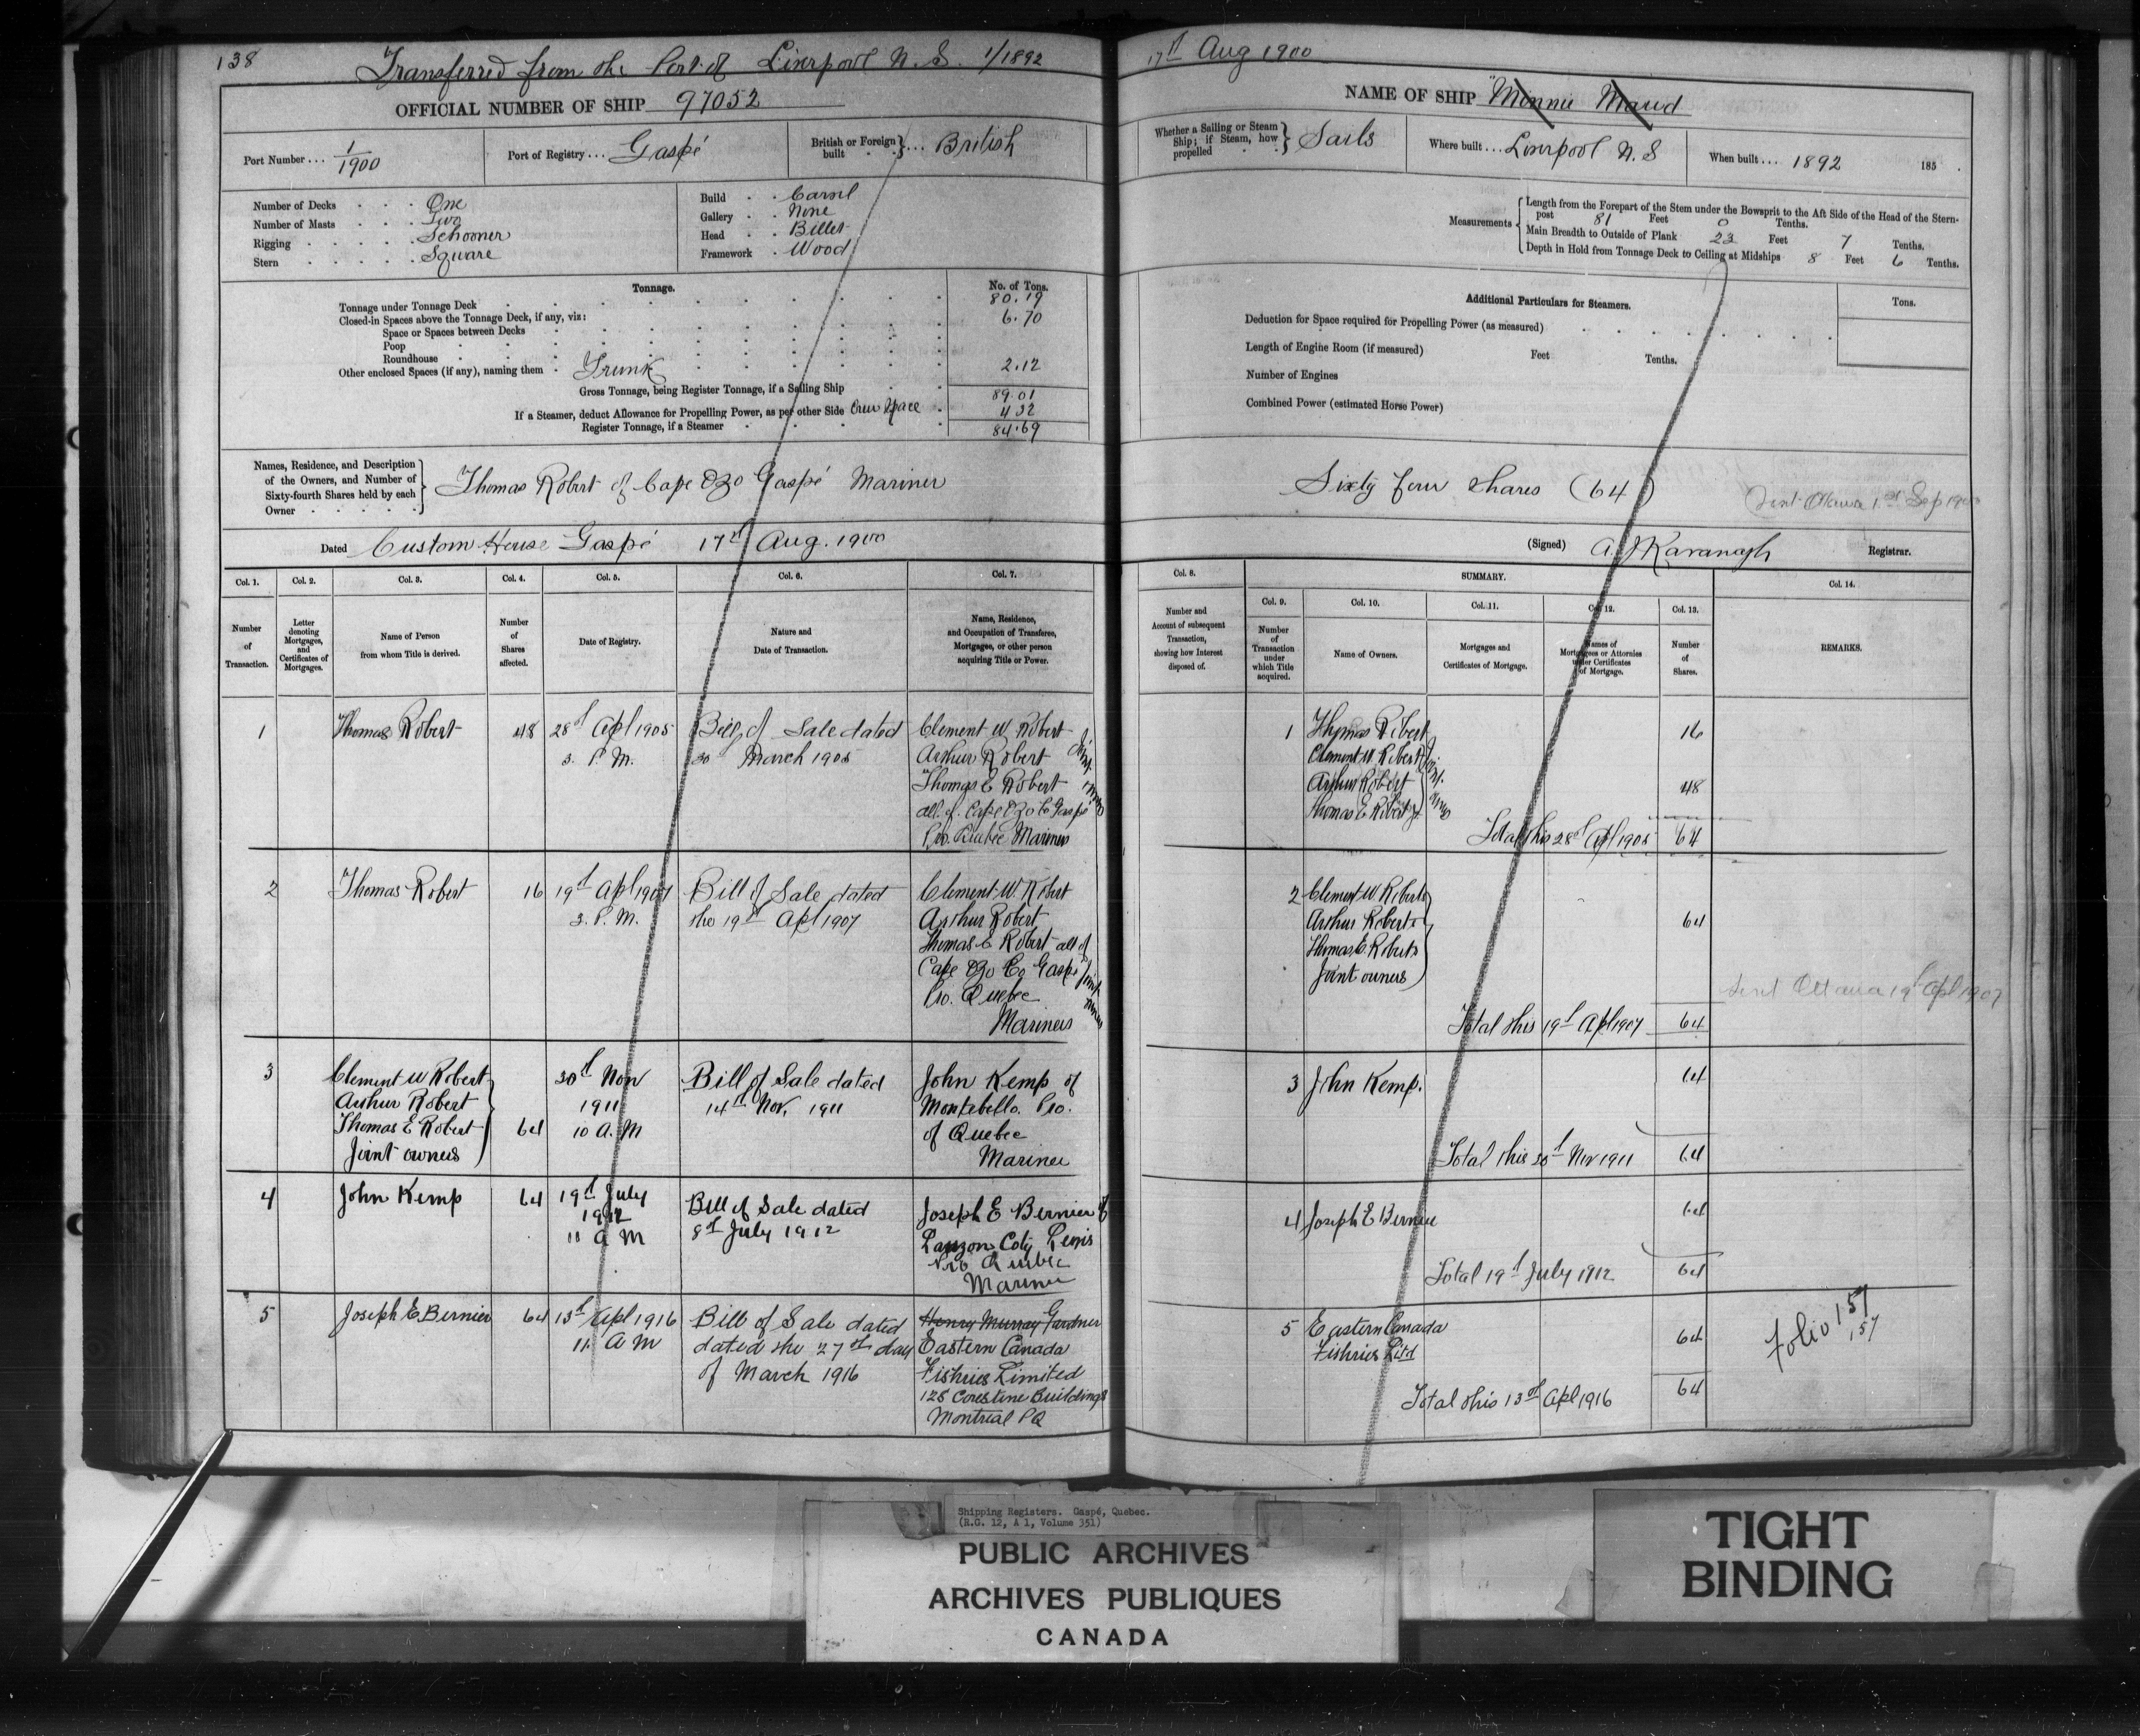 138
Transferred from the Port of Liverpool N. S. 1/1892
OFFICIAL NUMBER OF SHIP 97052
Port Number ... 1/1900
Port of Registry ... Gaspé
British or Foreign built } ... British
Number of Decks . . . One
Number of Masts . . . Two
Rigging . . . . . Schooner
Stern . . . . . Square
Build . . Carvel
Gallery . . None
Head . . Billet
Framework . Wood
Tonnage.
No. of Tons.
Tonnage under Tonnage Deck 80.19
Closed-in Spaces above the Tonnage Deck, if any, viz: 6.70
Space or Spaces between Decks
Poop
Roundhouse
Other enclosed Spaces (if any), naming them . Trunk 2.12
Gross Tonnage, being Register Tonnage, if a Sailing Ship 89.01
If a Steamer, deduct Allowance for Propelling Power, as per other Side Crew Space 4 32
Register Tonnage, if a Steamer 84.69
Names, Residence, and Description
of the Owners, and Number of
Sixty-fourth Shares held by each
Owner . . . . .
Thomas Robert of Cape Ozo Gaspé Mariner
Dated Custom House Gaspé 17th Aug. 1900
Col. 1. Col. 2. Col. 3. Col. 4. Col. 5. Col. 6. Col. 7.
Number of Transaction.
Letter denoting Mortgages, and Certificates of Mortgages.
Name of Person from whom Title is derived.
Number of Shares affected.
Date of Registry.
Nature and Date of Transaction.
Name, Residence, and Occupation of Transferee, Mortgagee, or other person acquiring Title or Power.
1 Thomas Robert 48 28th Apl 1905 Bill of Sale dated Clement W. Robert
3. P. M. 30 March 1905 Arthur Robert
Thomas E Robert
all of Cape Ozo Co Gaspé
Pro. Quebec Mariners
Joint owners
2 Thomas Robert 16 19th Apl 1907 Bill of Sale dated Clement W. Robert
3. P. M. the 19th Apl 1907 Arthur Robert
Thomas E Robert all of
Cape Ozo Co Gaspé
Pro. Quebec
Mariners
Joint owners
3 Clement W Robert 30th Nov Bill of Sale dated John Kemp of
Arthur Robert 1911 14th Nov. 1911 Montebello. Pro.
Thomas E Robert 64 10 A. M of Quebec
Joint owners Mariner
4 John Kemp 64 19th July Bill of Sale dated Joseph E Bernier of
1912 8th July 1912 Lauzon Coty Levis
11 A M Pro Quebec
Mariner
5 Joseph E. Bernier 64 13th Apl 1916 Bill of Sale dated Henry Murray Gardner
11. A M dated the 27th day Eastern Canada
of March 1916 Fishries Limited
128 Corestine Buildings
Montreal PQ
17th Aug 1900
NAME OF SHIP "Minnie Maud
Whether a Sailing or Steam Ship; if Steam, how propelled } Sails
Where built ... Liverpool N. S
When built .... 1892 185 .
Measurements
Length from the Forepart of the Stem under the Bowsprit to the Aft Side of the Head of the Stern-
post 81 Feet 0 Tenths.
Main Breadth to Outside of Plank 23 Feet 7 Tenths.
Depth in Hold from Tonnage Deck to Ceiling at Midships 8 Feet 6 Tenths.
Additional Particulars for Steamers.
Tons.
Deduction for Space required for Propelling Power (as measured)
Length of Engine Room (if measured) Feet Tenths.
Number of Engines
Combined Power (estimated Horse Power)
Sixty four shares (64)
Sent Ottawa 1st Sep 1900
(Signed) A. J Kavanagh Registrar.
Col. 8. SUMMARY. Col. 14.
Col. 9. Col. 10. Col. 11. Col. 12. Col. 13.
Number and Account of subsequent Transaction, showing how Interest disposed of.
Number of Transaction under which Title acquired.
Name of Owners.
Mortgages and Certificates of Mortgage.
Names of Mortgagees or Attornies under Certificates of Mortgage.
Number of Shares.
REMARKS.
1 Thomas Robert 16
Clement W. Robert
Arthur Robert 48
Thomas E Robert Jr
Joint owners
Total this 28th Apl 1905 64
2 Clement W Roberts
Arthur Roberts 64
Thomas E Roberts
Joint owners
Sent Ottawa 19th Apl 1907
Total this 19th Apl 1907 64
3 John Kemp. 64
Total this 30th Nov 1911 64
4 Joseph E Bernier 64
Total 19th July 1912 64
5 Eastern Canada 64
Fishries Ltd
Total this 13th Apl 1916 64
Folio 157
157
Shipping Registers. Gaspé, Quebec.
(R.G. 12, A 1, Volume 351)
PUBLIC ARCHIVES
ARCHIVES PUBLIQUES
CANADA
TIGHT
BINDING